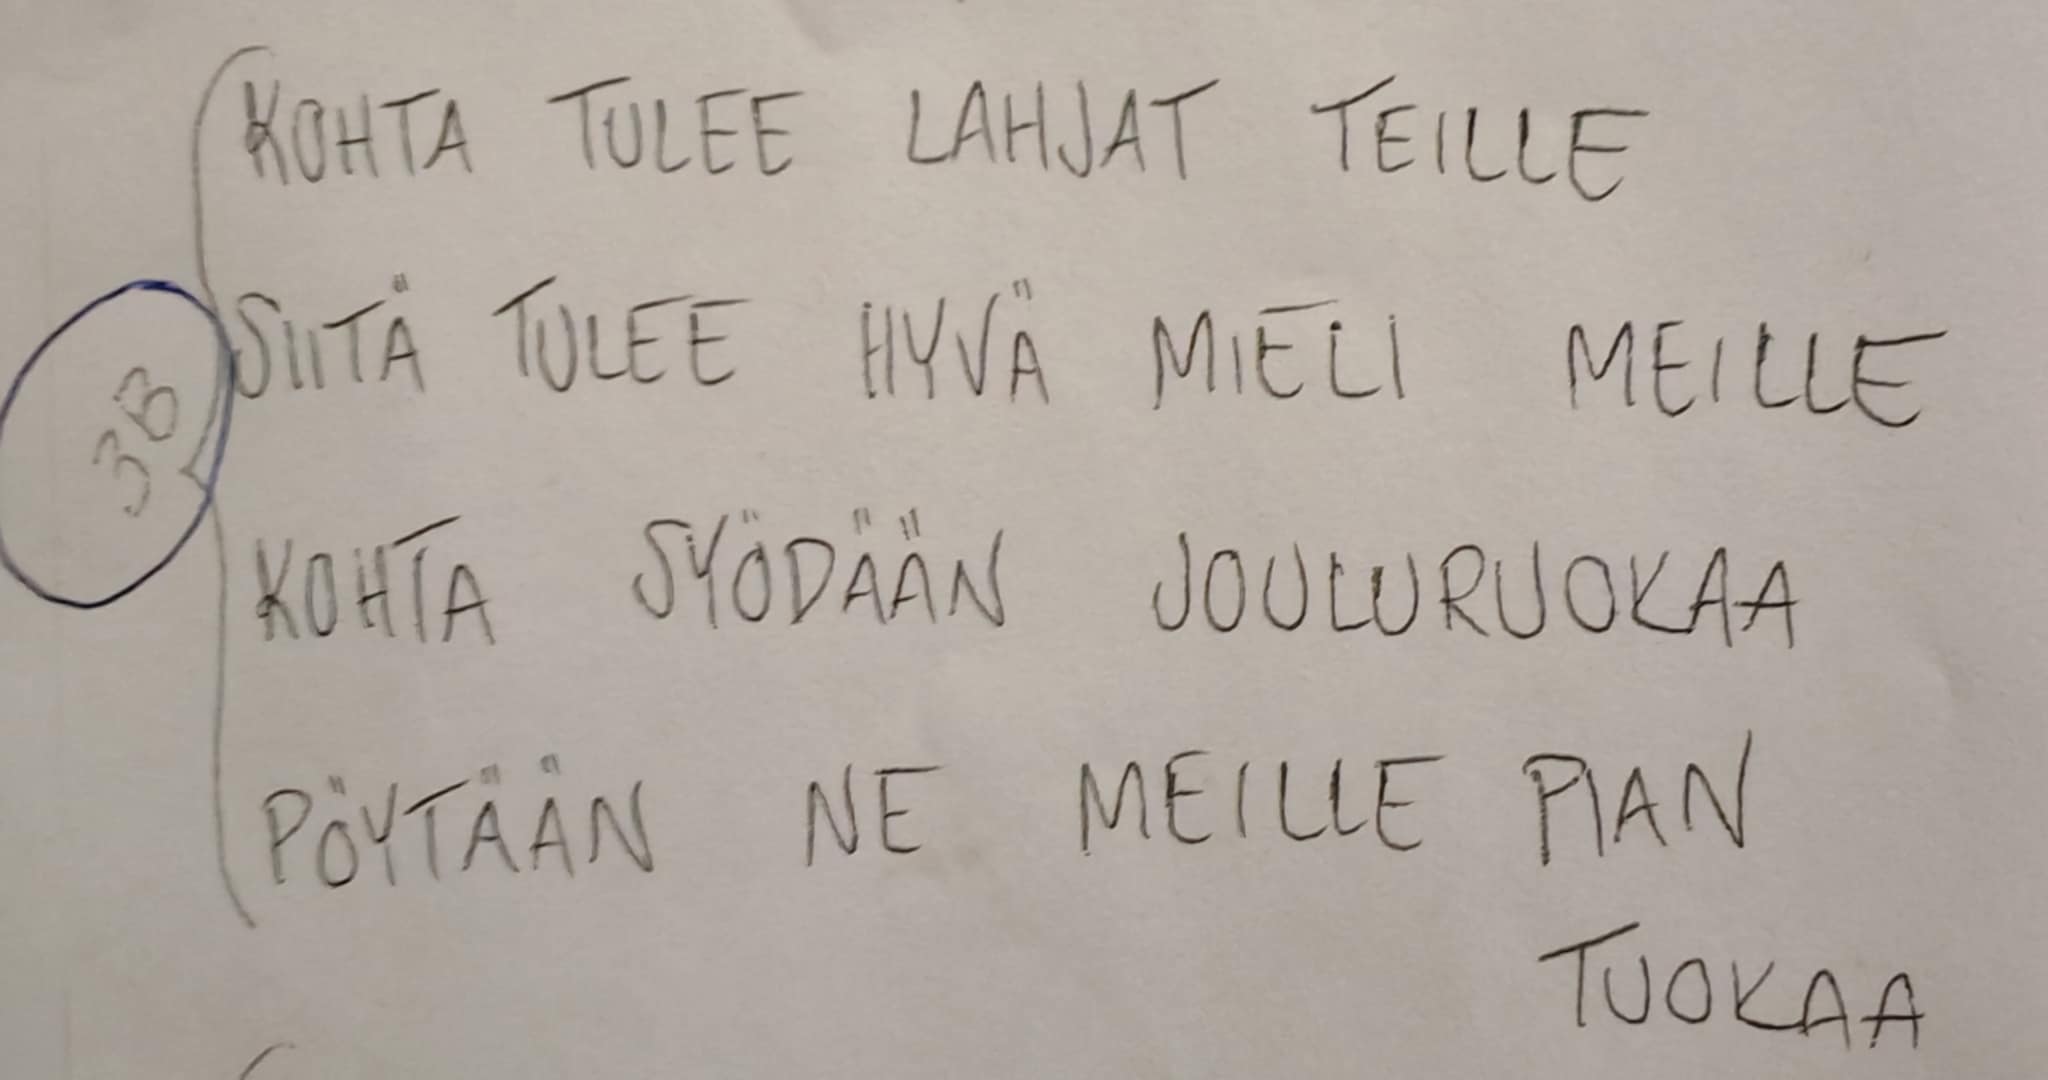 KOHTA TULEE LAHJAT TEILLE
SIITÄ TULEE HYVÄ MIELI MEILLE
3B
KOHTA SYÖDÄÄN JOULURUOKAA
PÖYTÄÄN NE MEILLE PIAN
TUOKAA